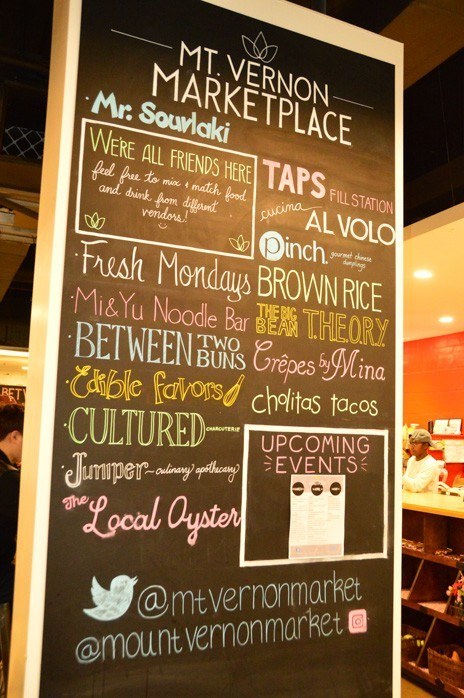 MT. VERNON
MARKETPLACE
Mr. Souvlaki
WE'RE ALL FRIENDS HERE
feel free to mix & match food
and drink from different
vendors!
TAPS FILL STATION
cucina
AL VOLO
Pinch. gourmet chinese
dumplings
Fresh Mondays
BROWN RICE
Mi&Yu Noodle Bar
THE BIG
BEAN THEORY
BETWEEN TWO
BUNS
Crêpes by Mina
Edible favors
cholitas tacos
CULTURED CHARCUTERIE
Juniper ~ culinary apothecary
The
Local Oyster
UPCOMING
EVENTS
@mtvernonmarket
@mountvernonmarket